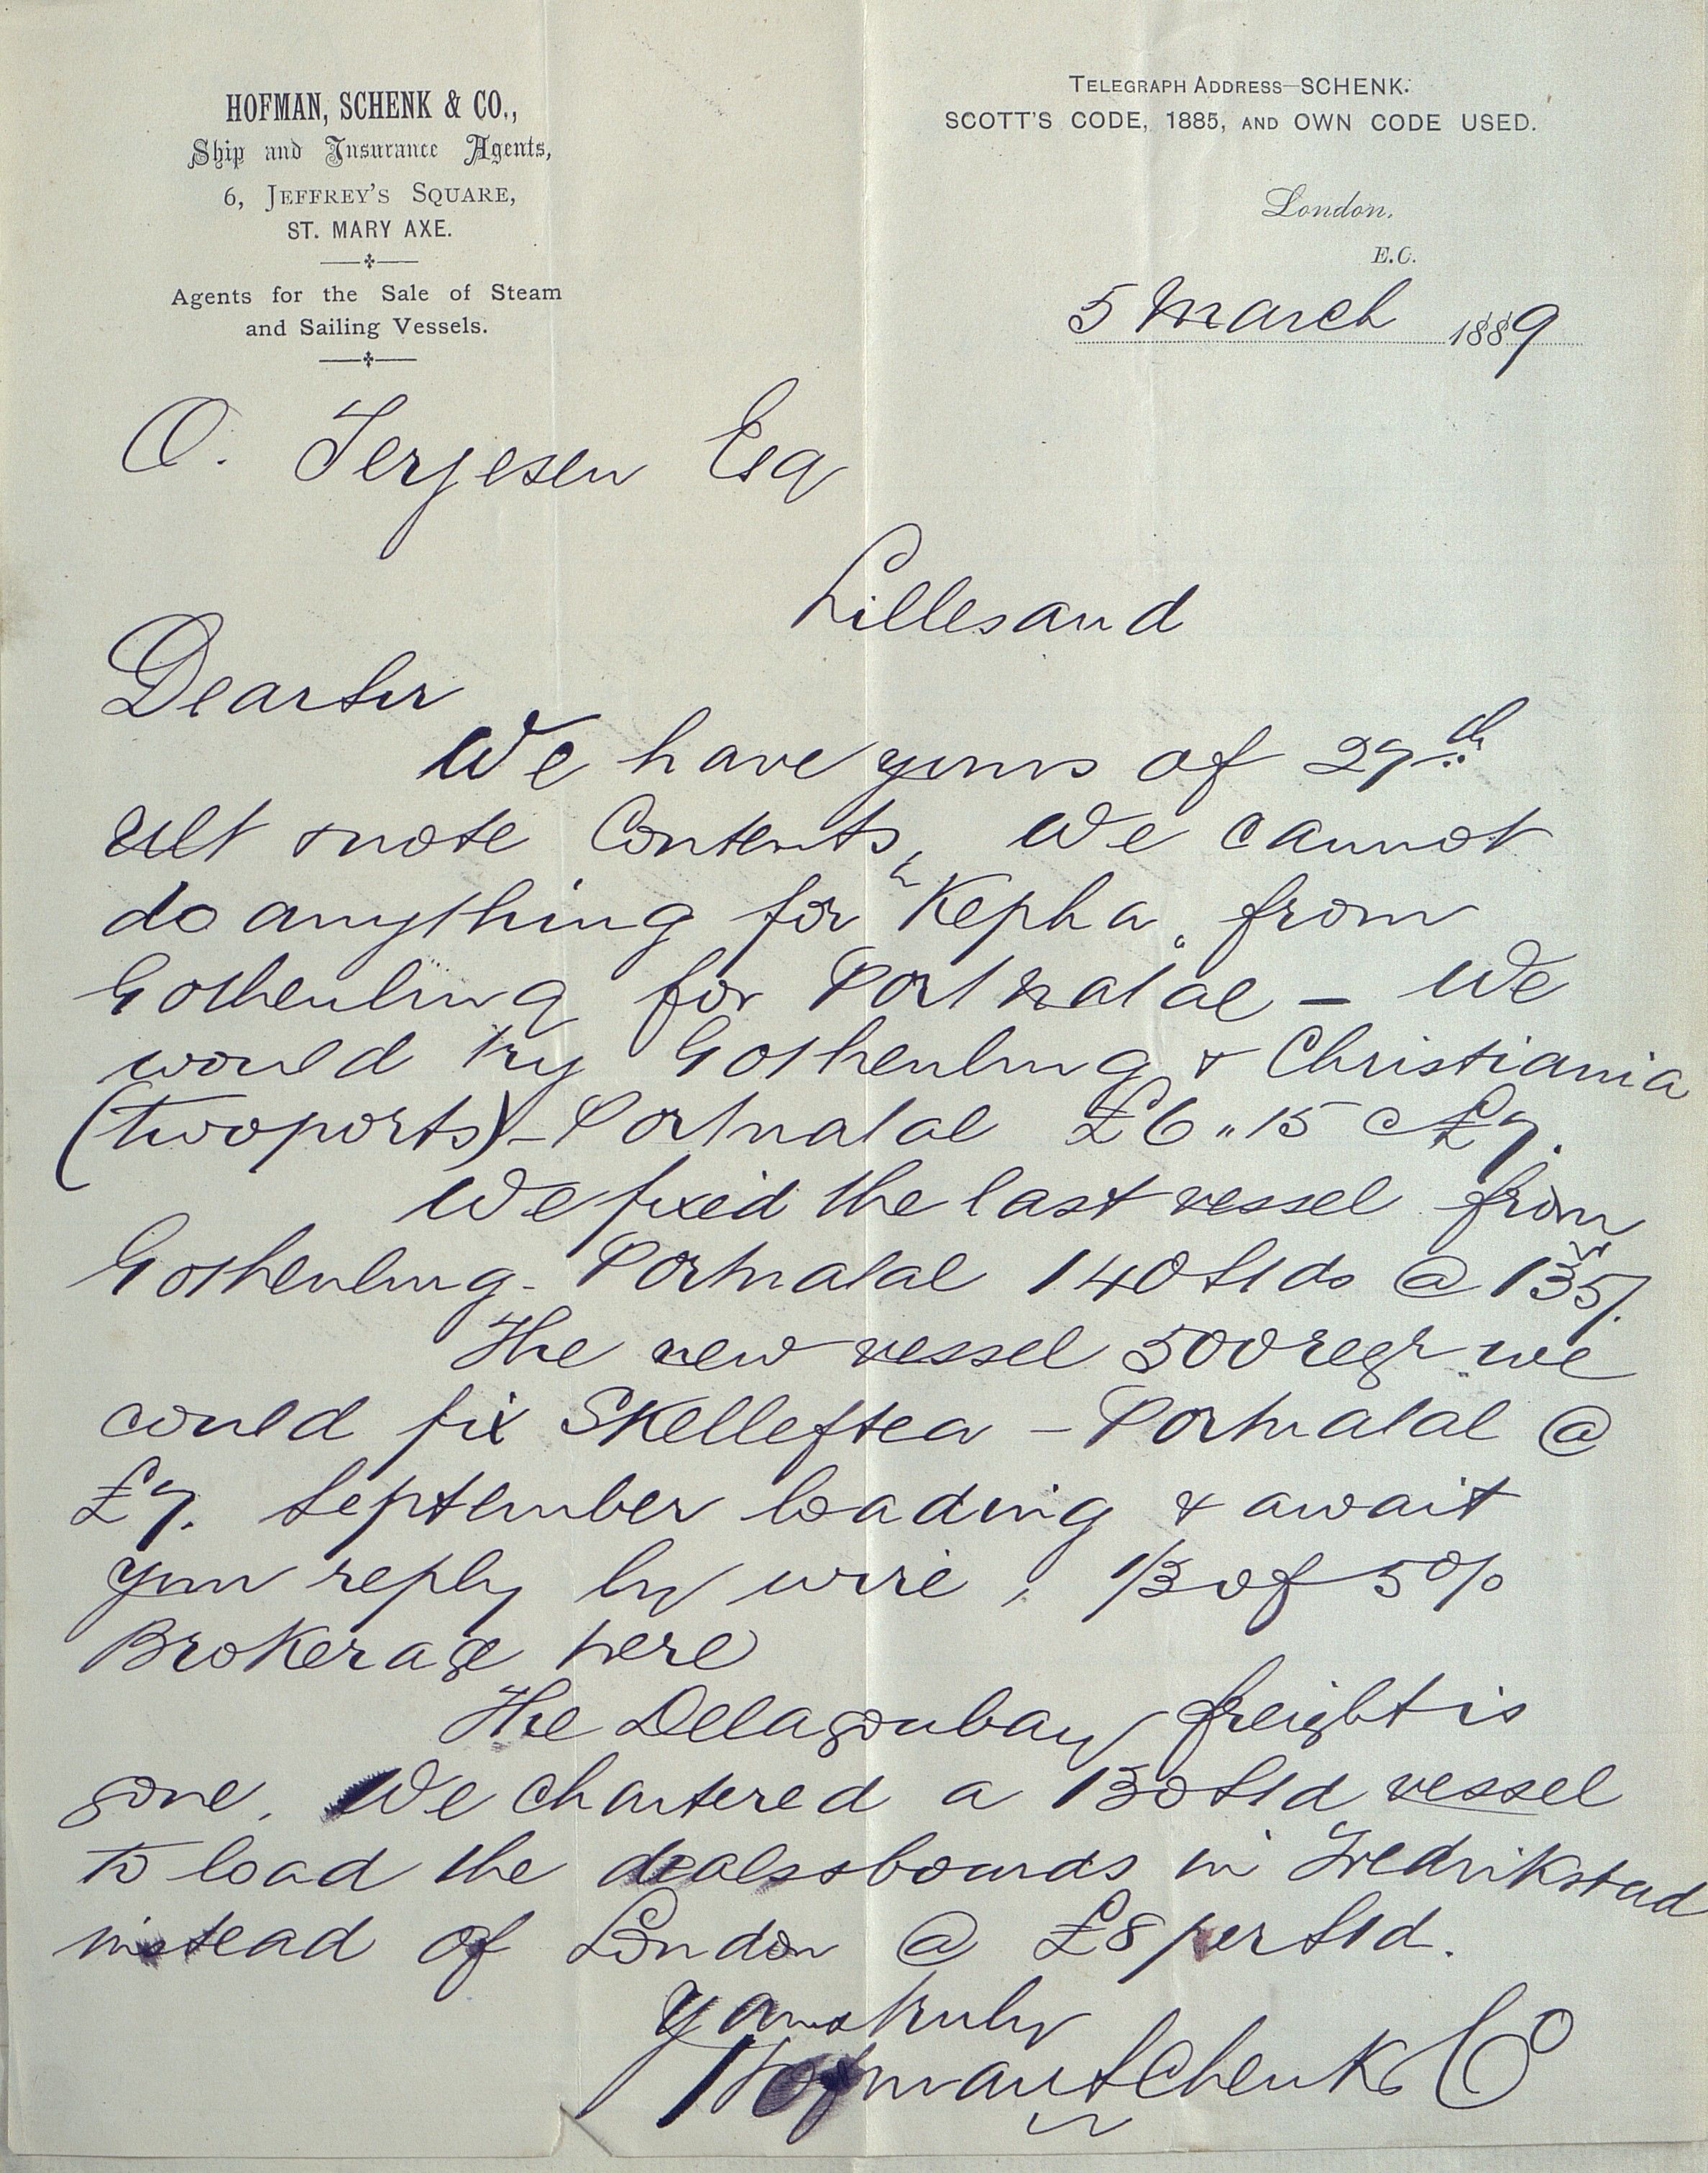 HOFMAN, SCHENK & CO.,
Ship and Insurance Agents,
6, JEFFREY'S SQUARE,
ST. MARY AXE.
Agents for the Sale of Steam
and Sailing Vessels.
TELEGRAPH ADDRESS—SCHENK.
SCOTT'S CODE, 1885, AND OWN CODE USED.
London,
E.C.
5 March 1889
O. Terjesen Esq
Lillesand
Dear Sir
We have yours of 27th
ult & note Contents, We cannot
do anything for "Kepha" from
Gothenburg for Port Natal – We
would try Gothenburg & Christiania
(two ports) – Port natal £6 " 15 @ £7.
We fixed the last vessel from
Gothenburg - Port natal 140 Stds @ 135/.
The new vessel 500 regr we
could fix Skelleftea – Port natal @
£7. September loading & await
your reply by wire, 1/3 of 5 %
Brokerage here
The Delagoabay freight is
gone. We chartered a 130 Std vessel
to load the deals & boards in Fredrikstad
instead of London @ £8 per Std.
Yours truly
Hofman Schenk & Co